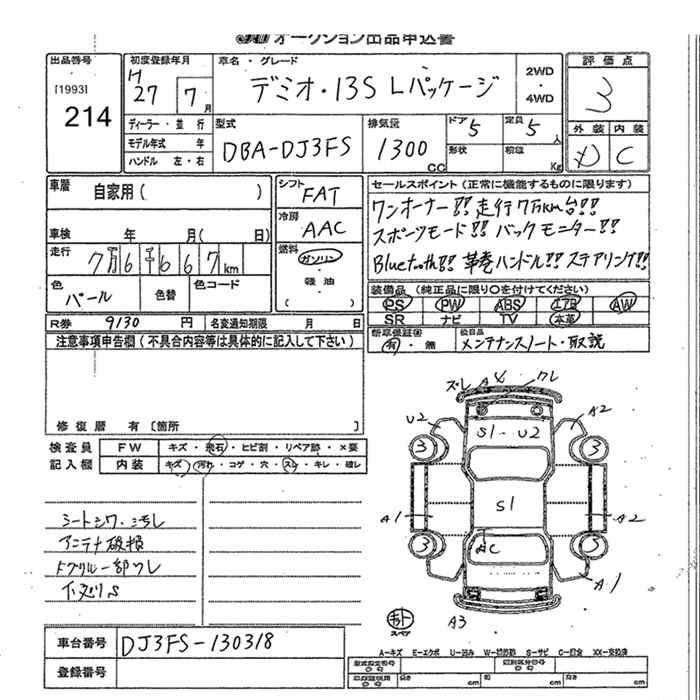 オークション出品申込書
出品番号 初度登録年月 車名・グレード 評価点
[1993] H 27 7月 デミオ・13S Lパッケージ 2WD・4WD 3
214
ディーラー・並行 型式 排気量 ドア 5 定員 5人 外装 内装
モデル年式 年 DBA-DJ3FS 1300cc 形状 積載 Kg D C
ハンドル 左・右
車歴 自家用( ) シフト FAT セールスポイント(正常に機能するものに限ります)
冷房 AAC ワンオーナー!! 走行7万km台!!
車検 年 月( 日) スポーツモード!! バックモニター!!
走行 7万6千667km 燃料 ガソリン・軽油 ( ) Bluetooth!! 革巻ハンドル!! ステアリング!!
色 パール 色替 色コード 装備品(純正品に限り○を付けてください)
PS PW ABS エアB AW
R券 9130円 名変通知期限 月 日 SR ナビ TV 本革
注意事項申告欄(不具合内容等は具体的に記入して下さい) 新車保証書 有・無 後日品 メンテナンスノート・取説
修復歴 有〔箇所 〕
検査員 FW キズ・飛石・ヒビ割・リペア跡・×要
記入欄 内装 キズ・汚れ・コゲ・穴・スレ・キレ・破レ
ズレ A ワレ
U2 S1・U2 A2
3 3
A1 S1 A2
3 AC 3
A1
A3
スペア
シートシワ・汚れ
アンテナ破損
Fグリル一部ワレ
下廻りS
車台番号 DJ3FS-130318
登録番号
A-キズ E-エクボ U-凹み W-補修跡 S-サビ C-腐食 XX-交換済
長さ cm 幅 cm 高さ cm